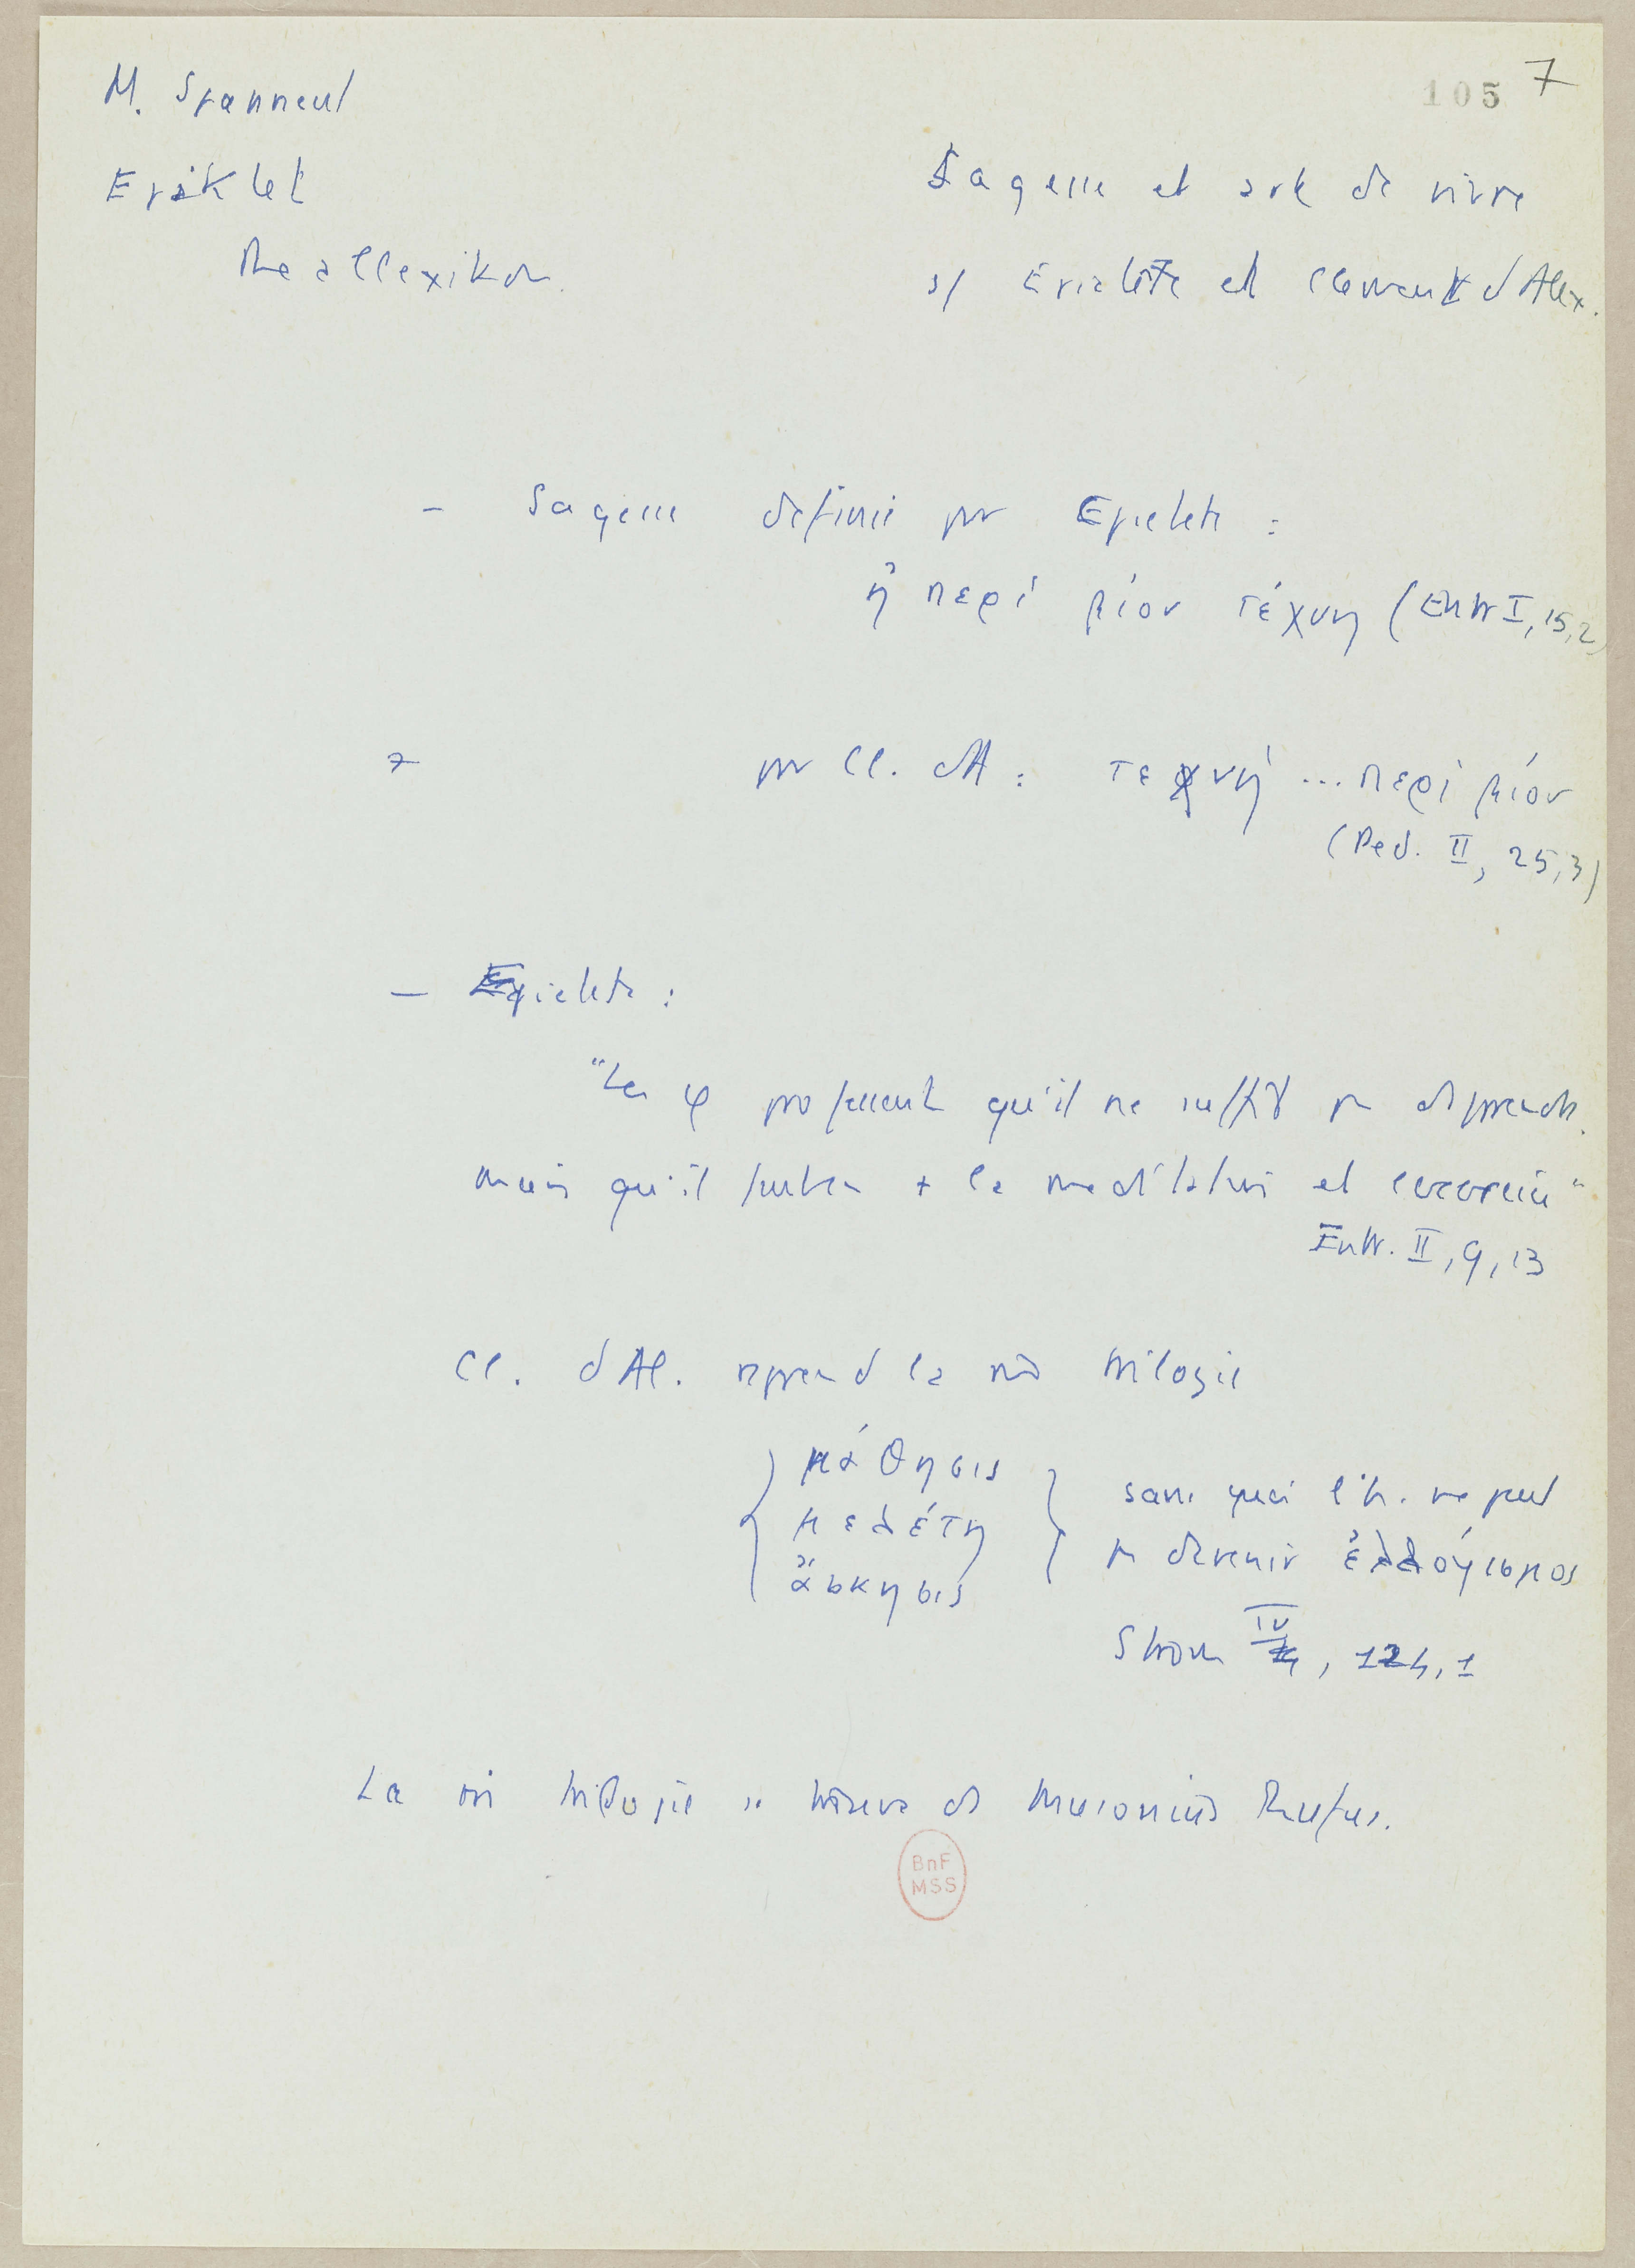 105 7
M. Spanneut
Epiktet
Reallexikon.
Sagesse et art de vivre
s/ Epictète et Clement d'Alex.
– Sagesse definie par Epictete :
ἡ περὶ βίον τέχνη (Entr I, 15, 2)
par Cl. d'A : τεχνή ... περὶ βίον
(Ped. II, 25, 3)
– Epictete :
"Les φ professent qu'il ne suffit pas d'apprendre.
mais qu'il faut la meditation et l'exercice"
Entr. II, 9, 13
Cl. d'Al. reprend la m̂ trilogie
{ μάθησις
μελέτη
ἄσκησις }
sans quoi l'h. ne peut
pas devenir ἐλλόγισμος
Strom IV, 124, 1
La m̂ trilogie se trouve ds Musonius Rufus.
BnF
MSS